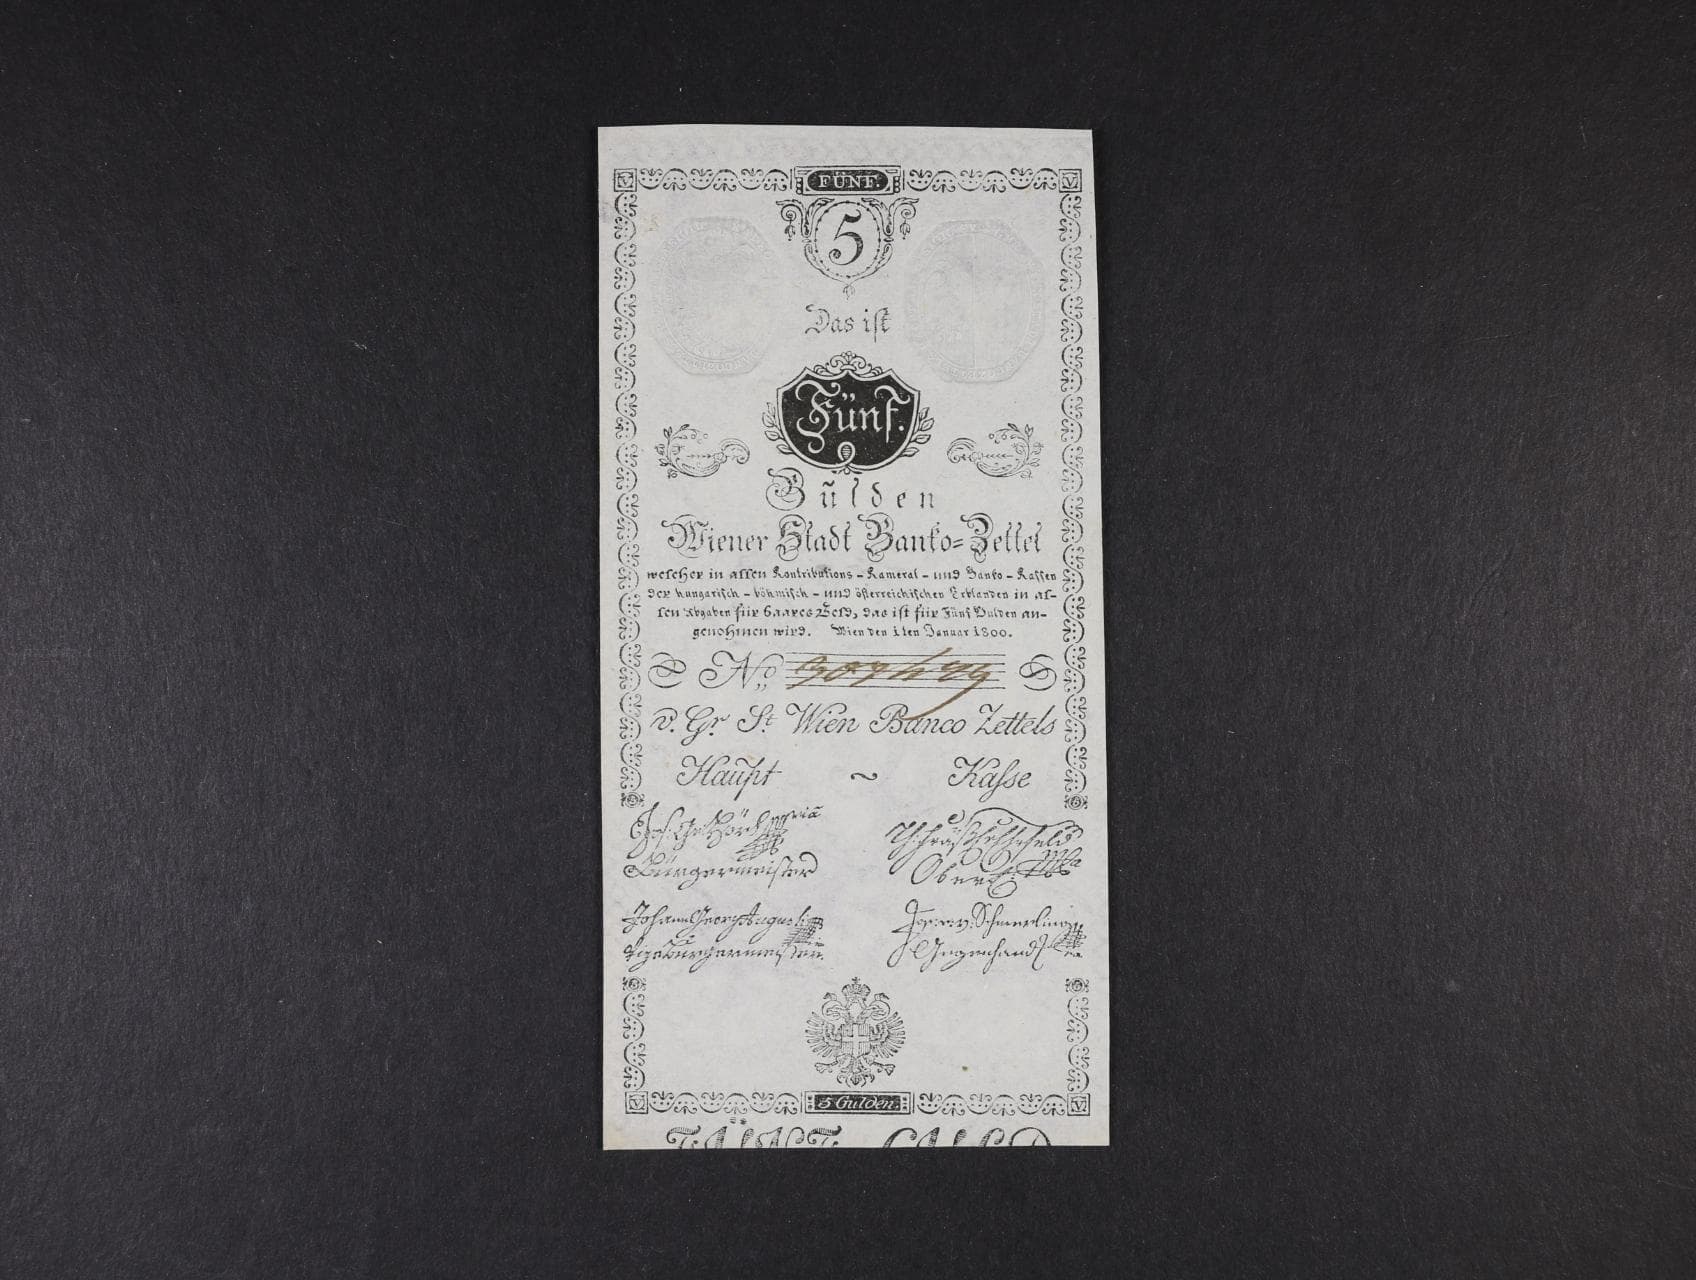 V FÜNF. V
5
Das ist
Fünf.
Gulden
Wiener Stadt Banko-Zettel
welcher in allen Kontributions - Kameral - und Banko - Kassen
der hungarisch - böhmisch - und österreichischen Erblanden in al-
len Abgaben für baares Geld, das ist für Fünf Gulden an-
genohmen wird. Wien den 1ten Januar 1800.
No.
v. Gr. St. Wien Banco Zettels
Haupt ~ Kasse
Bürgermeister
Johann Georg Augusti
Vizeburgermeister
Gegenhand
V 5 Gulden. V